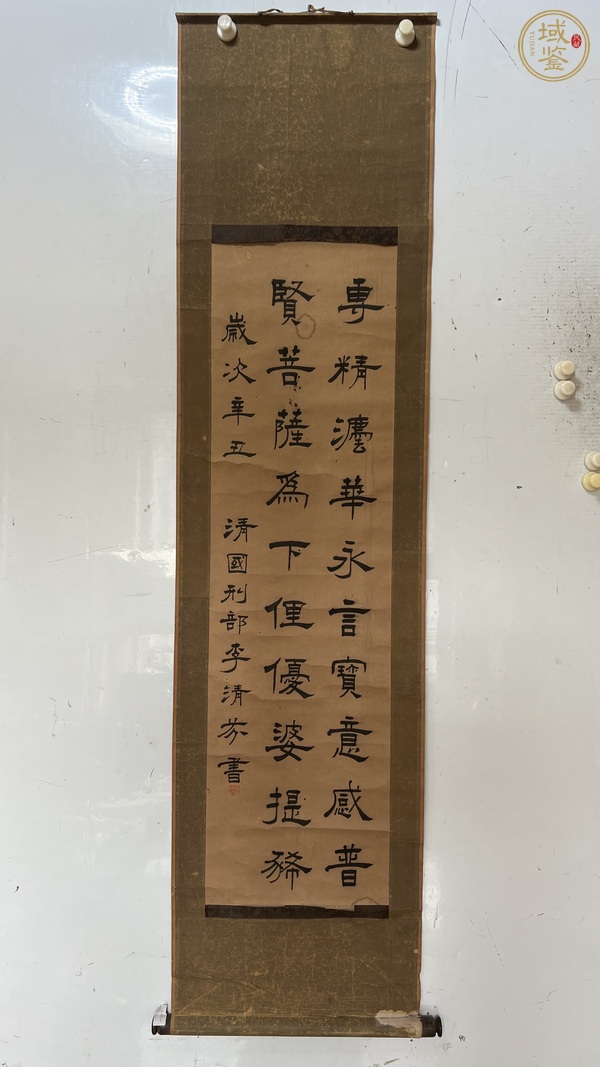 專精灋華永言寶意感普
賢菩薩爲下俚優婆提
歲次辛丑 清國刑部李清芬書
域鉴
YUJIAN